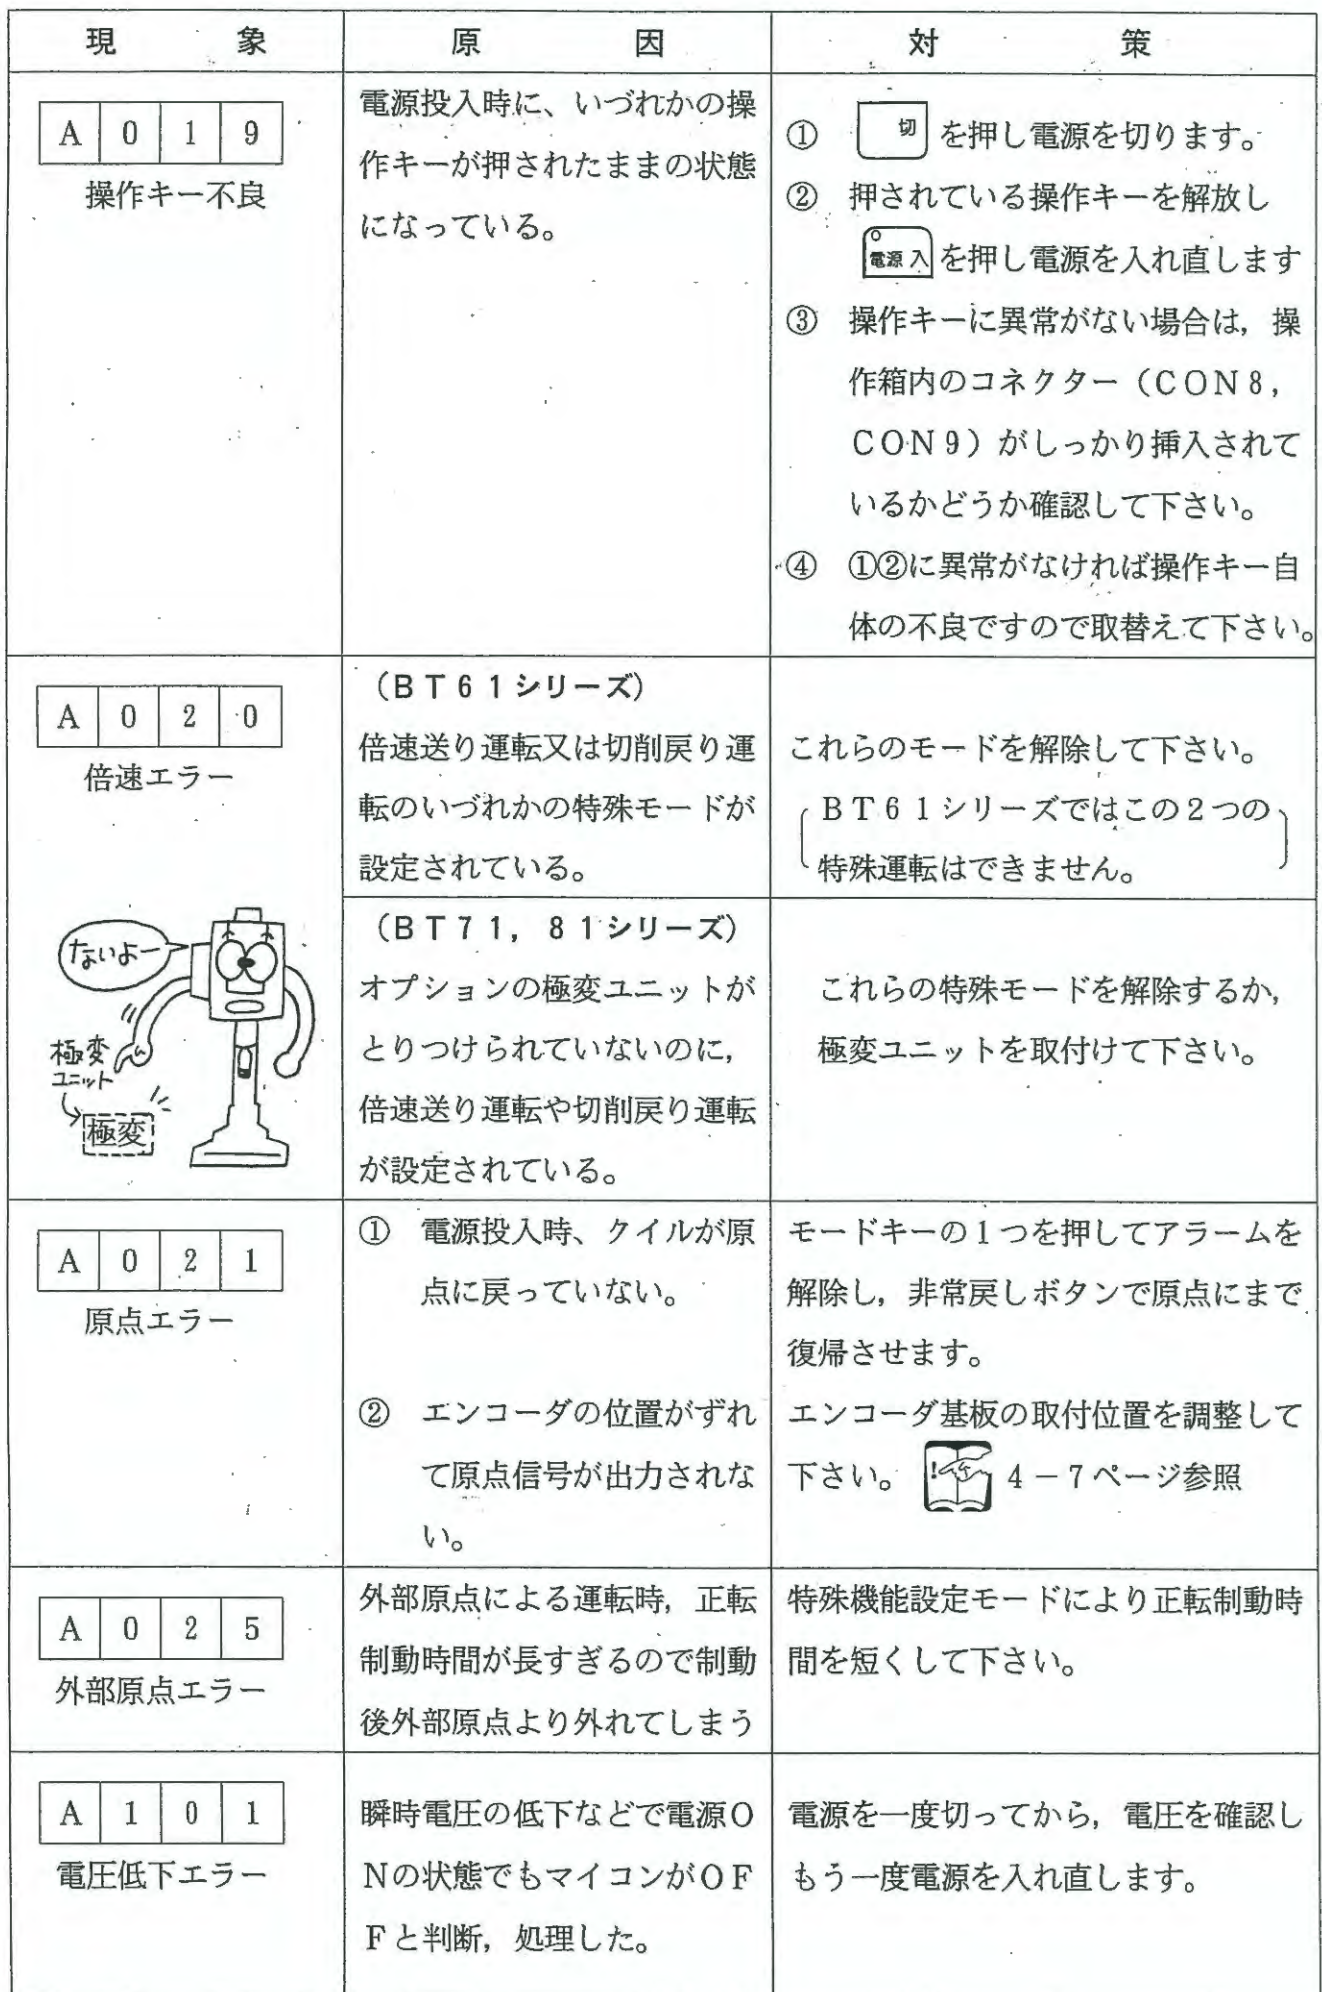 現象 原因 対策
A 0 1 9
操作キー不良
電源投入時に、いづれかの操
作キーが押されたままの状態
になっている。
① 切 を押し電源を切ります。
② 押されている操作キーを解放し
電源 入 を押し電源を入れ直します
③ 操作キーに異常がない場合は，操
作箱内のコネクター（CON8，
CON9）がしっかり挿入されて
いるかどうか確認して下さい。
④ ①②に異常がなければ操作キー自
体の不良ですので取替えて下さい。
A 0 2 0
倍速エラー
ないよー
極変
ユニット
極変
（BT61シリーズ）
倍速送り運転又は切削戻り運
転のいづれかの特殊モードが
設定されている。
これらのモードを解除して下さい。
BT61シリーズではこの2つの
特殊運転はできません。
（BT71，81シリーズ）
オプションの極変ユニットが
とりつけられていないのに，
倍速送り運転や切削戻り運転
が設定されている。
これらの特殊モードを解除するか，
極変ユニットを取付けて下さい。
A 0 2 1
原点エラー
① 電源投入時、クイルが原
点に戻っていない。
モードキーの1つを押してアラームを
解除し，非常戻しボタンで原点にまで
復帰させます。
② エンコーダの位置がずれ
て原点信号が出力されな
い。
エンコーダ基板の取付位置を調整して
下さい。 4－7ページ参照
A 0 2 5
外部原点エラー
外部原点による運転時，正転
制動時間が長すぎるので制動
後外部原点より外れてしまう
特殊機能設定モードにより正転制動時
間を短くして下さい。
A 1 0 1
電圧低下エラー
瞬時電圧の低下などで電源O
Nの状態でもマイコンがOF
Fと判断，処理した。
電源を一度切ってから，電圧を確認し
もう一度電源を入れ直します。